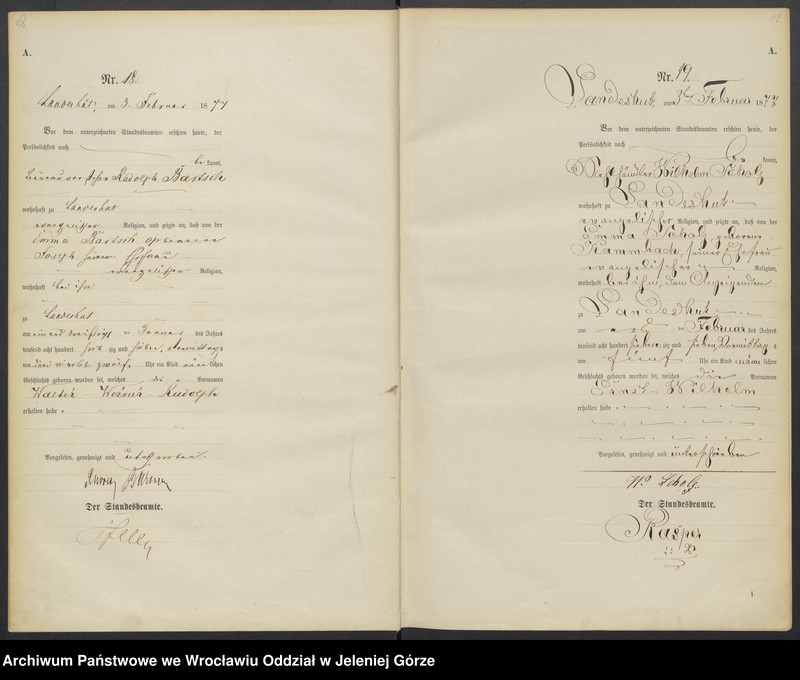 A.
Nr. 18.
Landeshut, am 3. Februar 1877
Vor dem unterzeichneten Standesbeamten erschien heute, der
Persönlichkeit nach
be kannt,
Rudolph Bartsch
wohnhaft zu Landeshut
evangelischer Religion, und zeigte an, daß von der
Emma Bartsch geborenen
Joseph seiner Ehefrau
evangelischer Religion,
wohnhaft bei ihm
zu Landeshut
am ein und dreißigsten Januar des Jahres
tausend acht hundert sieb zig und sieben, Vormittags
um drei viertel zwölf Uhr ein Kind männlichen
Geschlechts geboren worden sei, welches die Vornamen
Walter Werner Rudolph
erhalten habe.
Vorgelesen, genehmigt und unterschrieben.
Der Standesbeamte.
A.
Nr. 19.
Landeshut, am 3ten Februar 1877
Vor dem unterzeichneten Standesbeamten erschien heute, der
Persönlichkeit nach
be kannt,
Wilhelm Scholz
wohnhaft zu Landeshut
evangelischer Religion, und zeigte an, daß von der
Emma Scholz, geborene
Kammbach, seiner Ehefrau
evangelischer Religion,
wohnhaft bei ihm, dem Anzeigenden
zu Landeshut
am Februar des Jahres
tausend acht hundert sieben zig und sieben, Vormittag s
um fünf Uhr ein Kind männ lichen
Geschlechts geboren worden sei, welches die Vornamen
Ernst Wilhelm
erhalten habe
Vorgelesen, genehmigt und unterschrieben
W. Scholz
Der Standesbeamte.
Kasper
1
Archiwum Państwowe we Wrocławiu Oddział w Jeleniej Górze